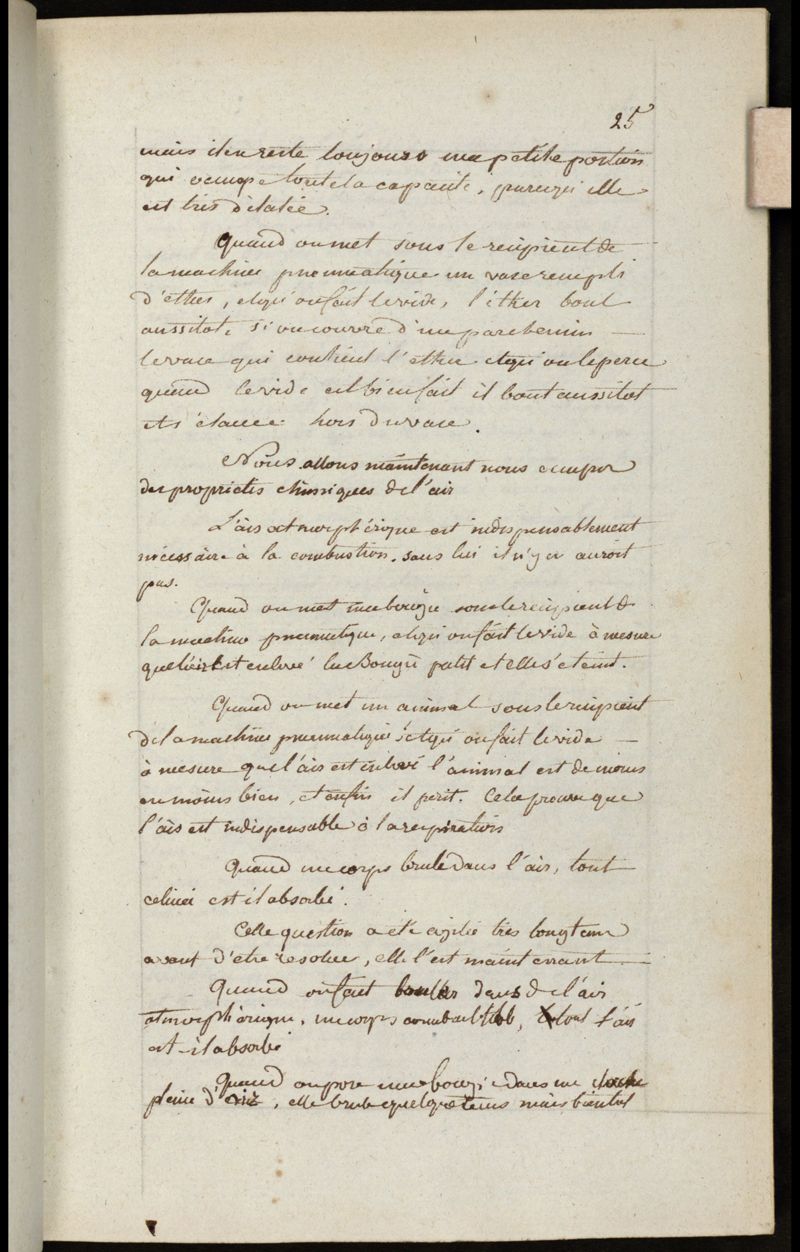 25
mais il en reste toujours une petite portion
qui occupe toute la capacité, parcequ'elle
est très dilatée.
Quand on met sous le recipient de
la machine pneumatique un vase rempli
d'ether, et qu'on fait le vide, l'ether bout
aussitot, si on couvre d'un parchemin
le vase qui contient l'ether et qu'on le perce
quand le vide est bien fait il bout aussitot
et s'élance hors du vase.
Nous allons maintenant nous occuper
des propriétés chimiques de l'air
L'air atmosphérique est indispensablement
nécessaire à la combustion. sans lui il n'y en auroit
pas.
Quand on met une bougie sous le recipient de
la machine pneumatique, et qu'on fait le vide à mesure
que l'air est enlevé la Bougie palit et elle s'eteint.
Quand on met un animal sous le recipient
de la machine pneumatique et qu'on fait le vide
à mesure que l'air est enlevé l'animal est de moins
en moins bien, et enfin il perit. Cela prouve que
l'air est indispensable à la respiration
Quand un corps brule dans l'air, tout
celuici est il absorbé.
Cette question a été agitée très longtems
avant d'etre resolue, elle l'est maintenant
Quand on fait bruler dans de l'air
atmosphérique, un corps combustible, tout l'air
est-il absorbé
Quand on pose une bougie dans une cloche
pleine d'air, elle brule quelque tems mais bientot